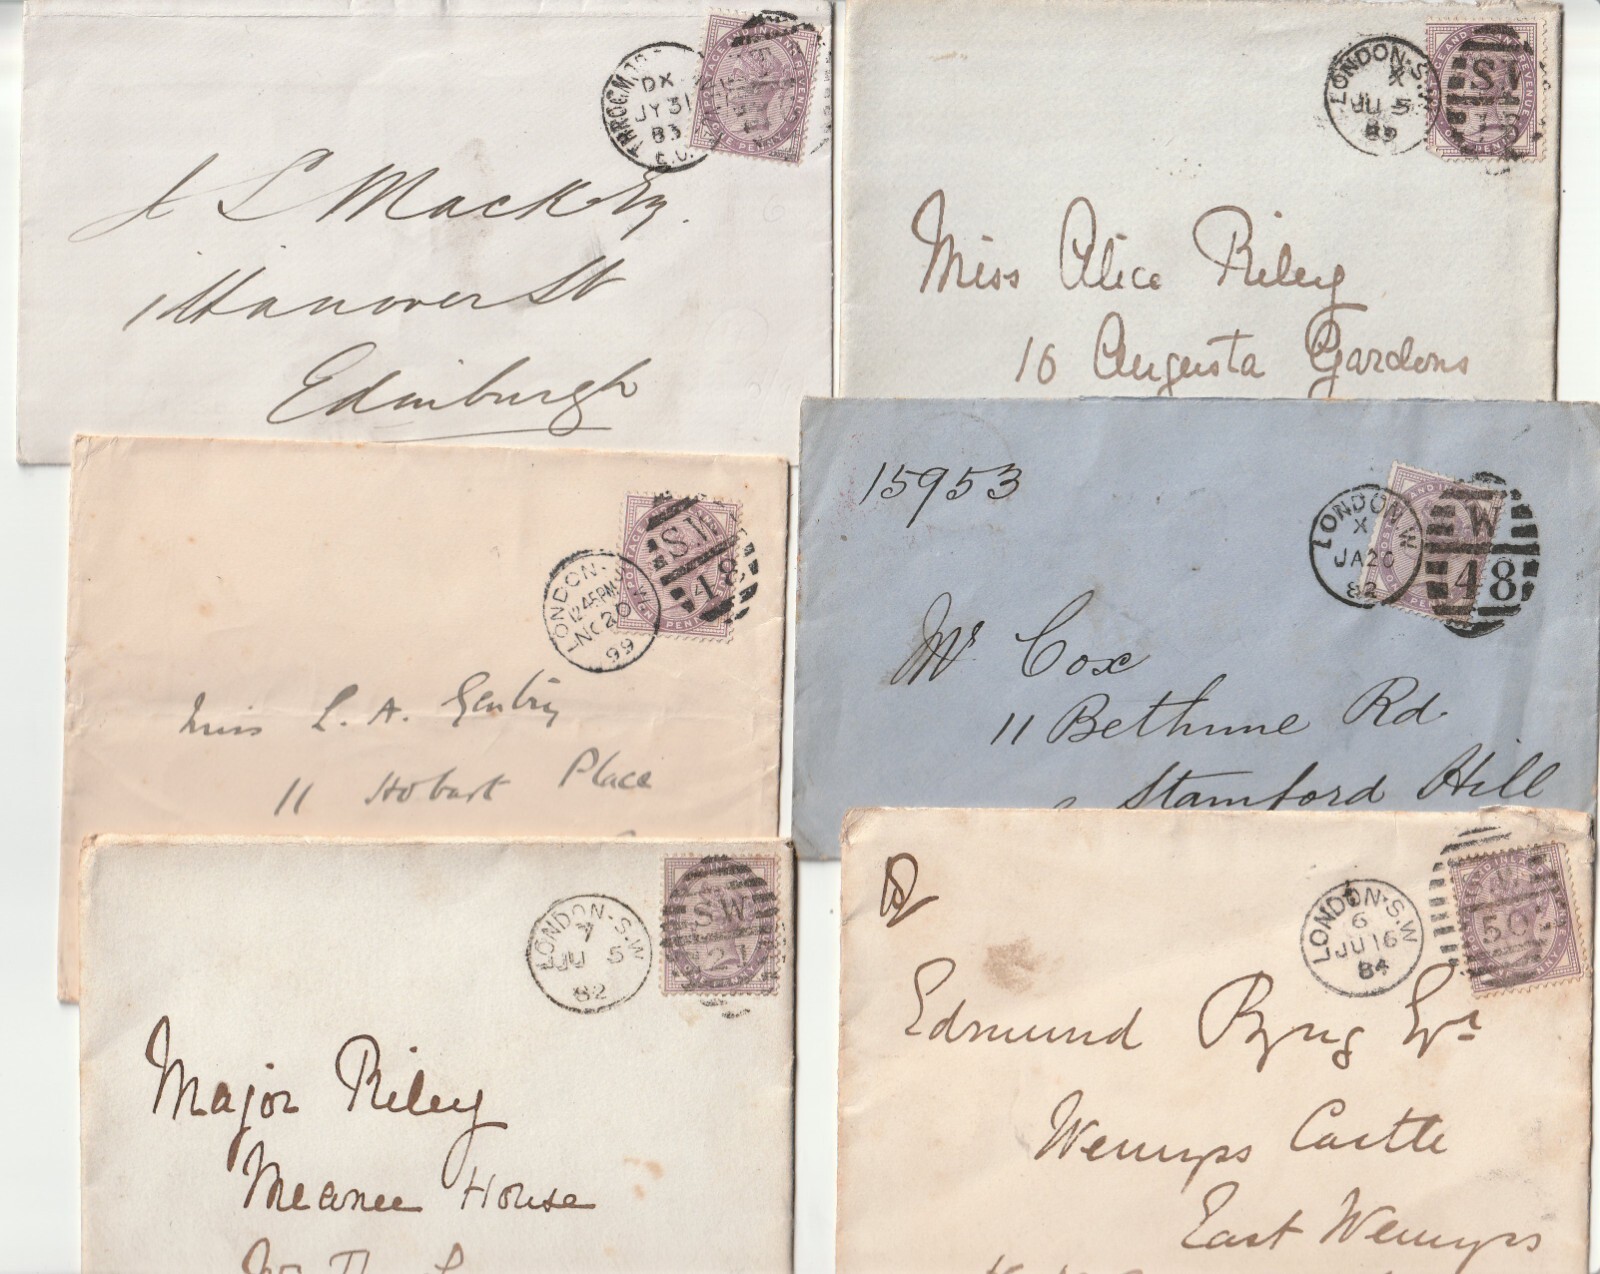 THROGM
DX
JY 31
83
J L Mack Esq.
1 Hanover St
Edinburgh
LONDON·S.W
X
JU 5
85
SW
Miss Alice Riley
16 Augusta Gardens
LONDON·S.W
12.45PM
NO 20
99
SW
48
Miss L. A.
11 Hobart Place
15953
LONDON·W
X
JA 20
82
W
48
Mr Cox
11 Bethune Rd
Stamford Hill
LONDON·S.W
7
JU 5
82
SW
21
Major Riley
Meanee House
LONDON·S.W
6
JU 16
84
50
Edmund Byng Esqr
Wemyss Castle
East Wemyss